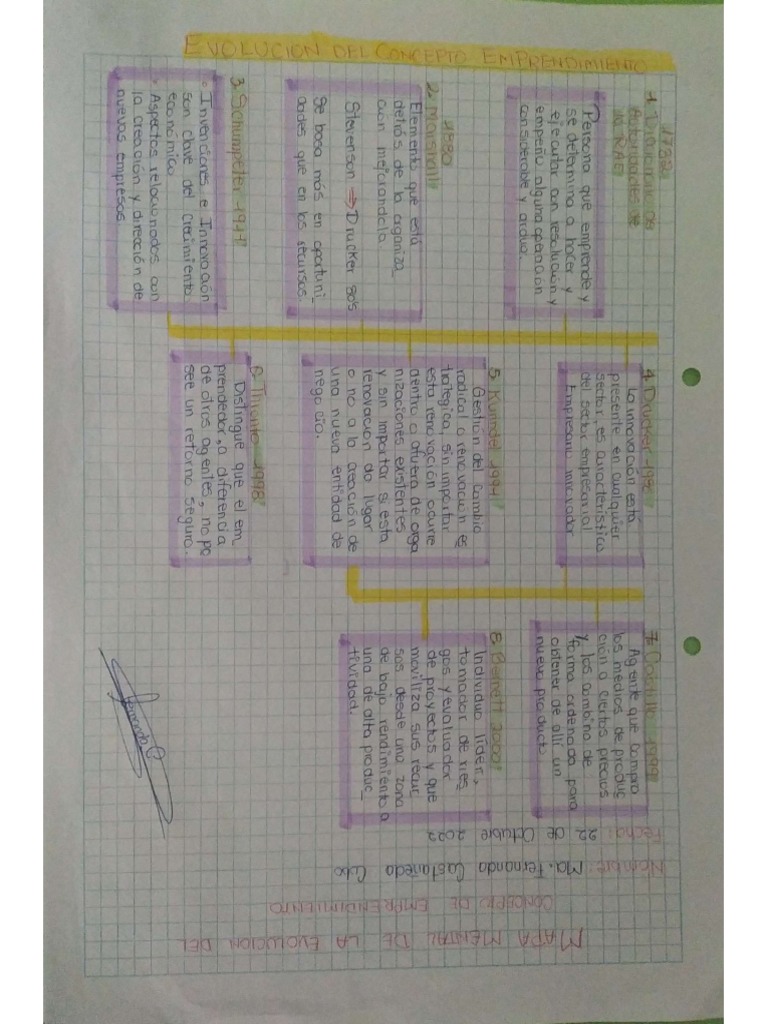 MAPA MENTAL DE LA EVOLUCION DEL
CONCEPTO DE EMPRENDIMIENTO
Nombre: Ma. Fernanda Castañeda Cobo
Fecha: 22 de Octubre 2022
EVOLUCION DEL CONCEPTO EMPRENDIMIENTO
1732
1. Diccionario de
Autoridades de
la RAE
Persona que emprende y
se determina a hacer y
ejecutar con resolución y
empeño alguna operación
considerable y ardua.
1880
2. Marshall
Elemento que está
detrás de la organiza_
ción mejorandola.
Stevenson → Drucker 80's
Se basa más en oportuni_
dades que en los recursos.
3. Schumpeter - 1911
• Invenciones e Innovación
son clave del Crecimiento
económico
• Aspectos relacionados con
la creación y dirección de
nuevas empresas.
4. Drucker -
La innovación está
presente en cualquier
sector, es característica
del sector empresarial
Empresario innovador
5. Kundel 1991
Gestión del cambio
radical o renovación es
trategica, sin importar
esta renovación ocurre
dentro o afuera de orga
nizaciones existentes
y sin importar si esta
renovación da lugar
o no a la creación de
una nueva entidad de
negocio.
6. 1998
Distingue que el em
prendedor, a diferencia
de otros agentes, no po
see un retorno seguro.
7. Castillo 1999
Agente que compra
los medios de produc
ción a ciertos precios
y los combina de
forma ordenada para
obtener de allí un
nuevo producto
8. 2000
Individuo líder,
tomador de ries_
gos y evaluador
de proyectos y que
moviliza sus recur
sos desde una zona
de bajo rendimiento a
una de alta produc_
tividad.
Fernanda C